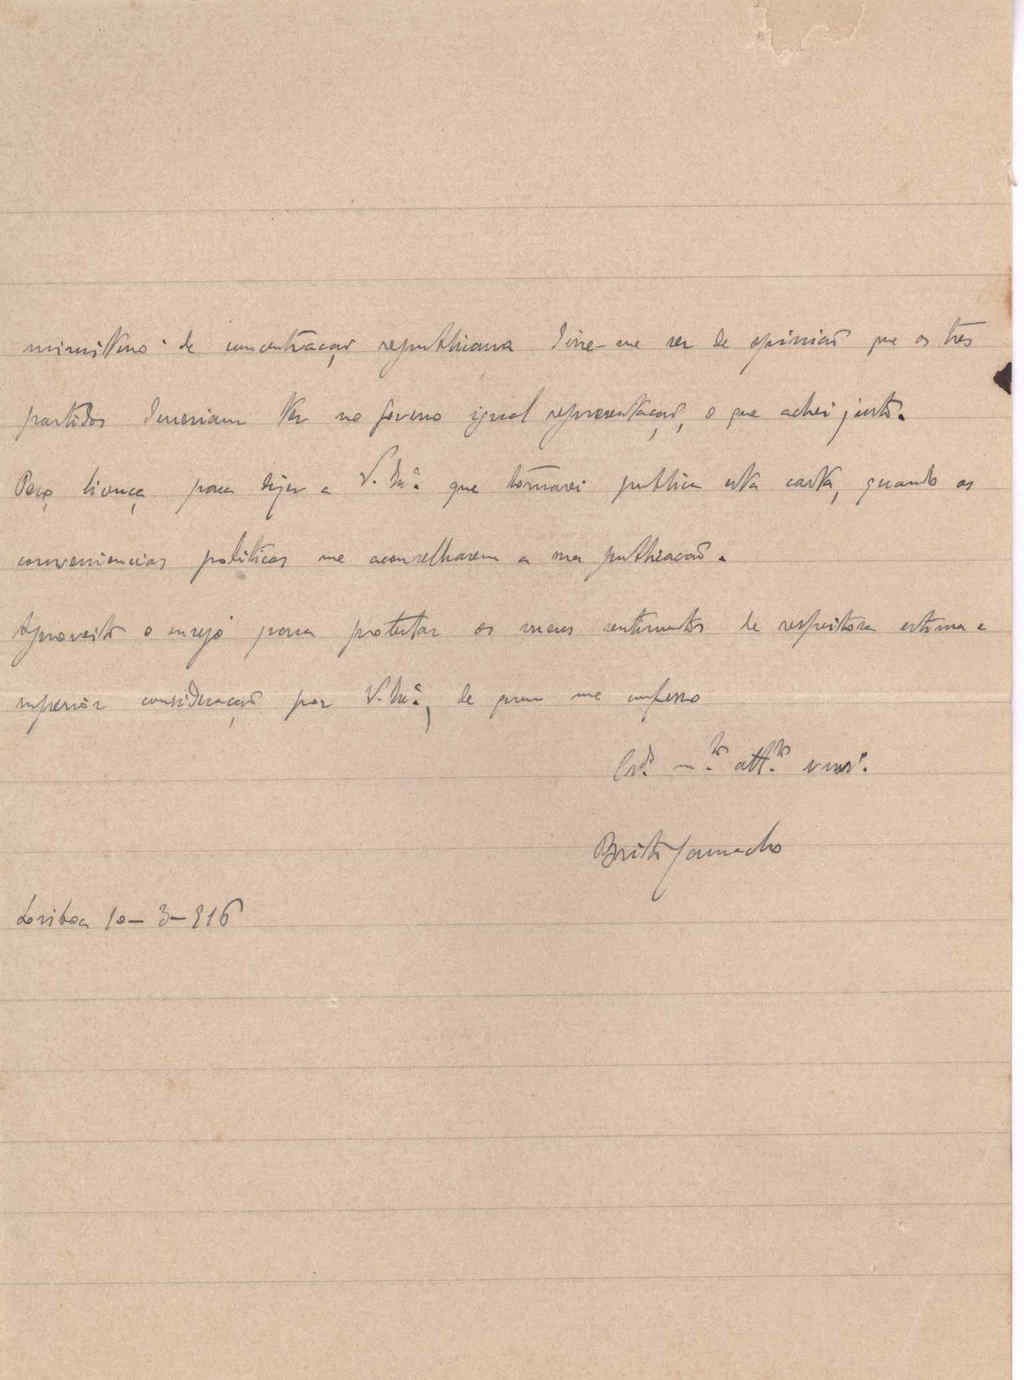 ministerio de concentração republicana disse-me ser de opinião que os tres
partidos deveriam ter no governo igual representação, o que achei justo.
Peço licença para dizer a V. Ex.ª que tornarei publica esta carta, quando as
conveniencias politicas me aconselharem a sua publicação.
Aproveito o ensejo para protestar os meus sentimentos de respeitosa estima e
superior consideração por V. Ex.ª, de quem me confesso
Cr.do m.to att.to vnr.
Brito Camacho
Lisboa 10-3-916